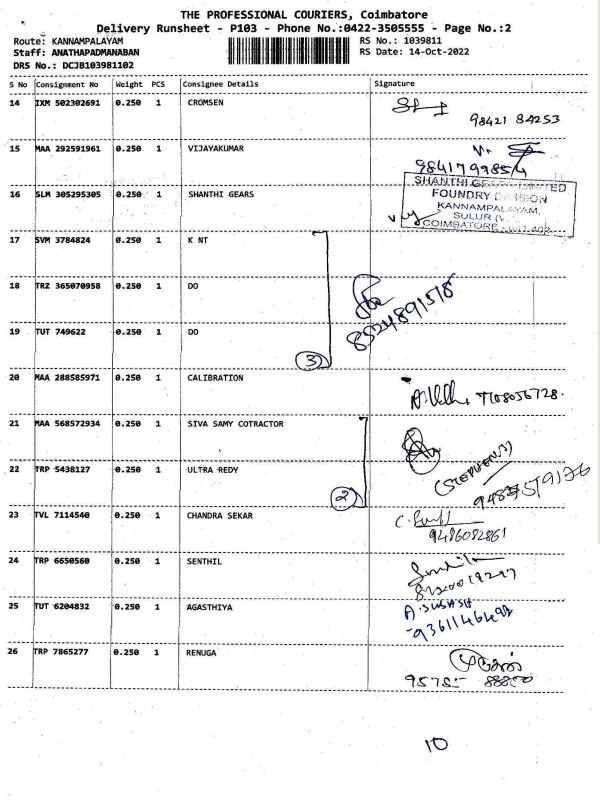 THE PROFESSIONAL COURIERS, Coimbatore
Delivery Runsheet - P103 - Phone No.:0422-3505555 - Page No.:2
Route: KANNAMPALAYAM RS No.: 1039811
Staff: ANATHAPADMANABAN RS Date: 14-Oct-2022
DRS No.: DCJB103981102
S No Consignment No Weight PCS Consignee Details Signature
14 IXM 502302691 0.250 1 CROMSEN
98421 84253
15 MAA 292591961 0.250 1 VIJAYAKUMAR
SHANTHI GEARS LIMITED
16 SLM 305295305 0.250 1 SHANTHI GEARS FOUNDRY DIVISION
KANNAMPALAYAM,
SULUR
COIMBATORE
17 SVM 3784824 0.250 1 K NT
18 TRZ 365070958 0.250 1 DO
19 TUT 749622 0.250 1 DO
3
20 MAA 288585971 0.250 1 CALIBRATION
21 MAA 568572934 0.250 1 SIVA SAMY COTRACTOR
22 TRP 5438127 0.250 1 ULTRA REDY
(STEPHEN)
2
23 TVL 7114540 0.250 1 CHANDRA SEKAR
9486082861
24 TRP 6650560 0.250 1 SENTHIL
25 TUT 6204832 0.250 1 AGASTHIYA
26 TRP 7865277 0.250 1 RENUGA
10